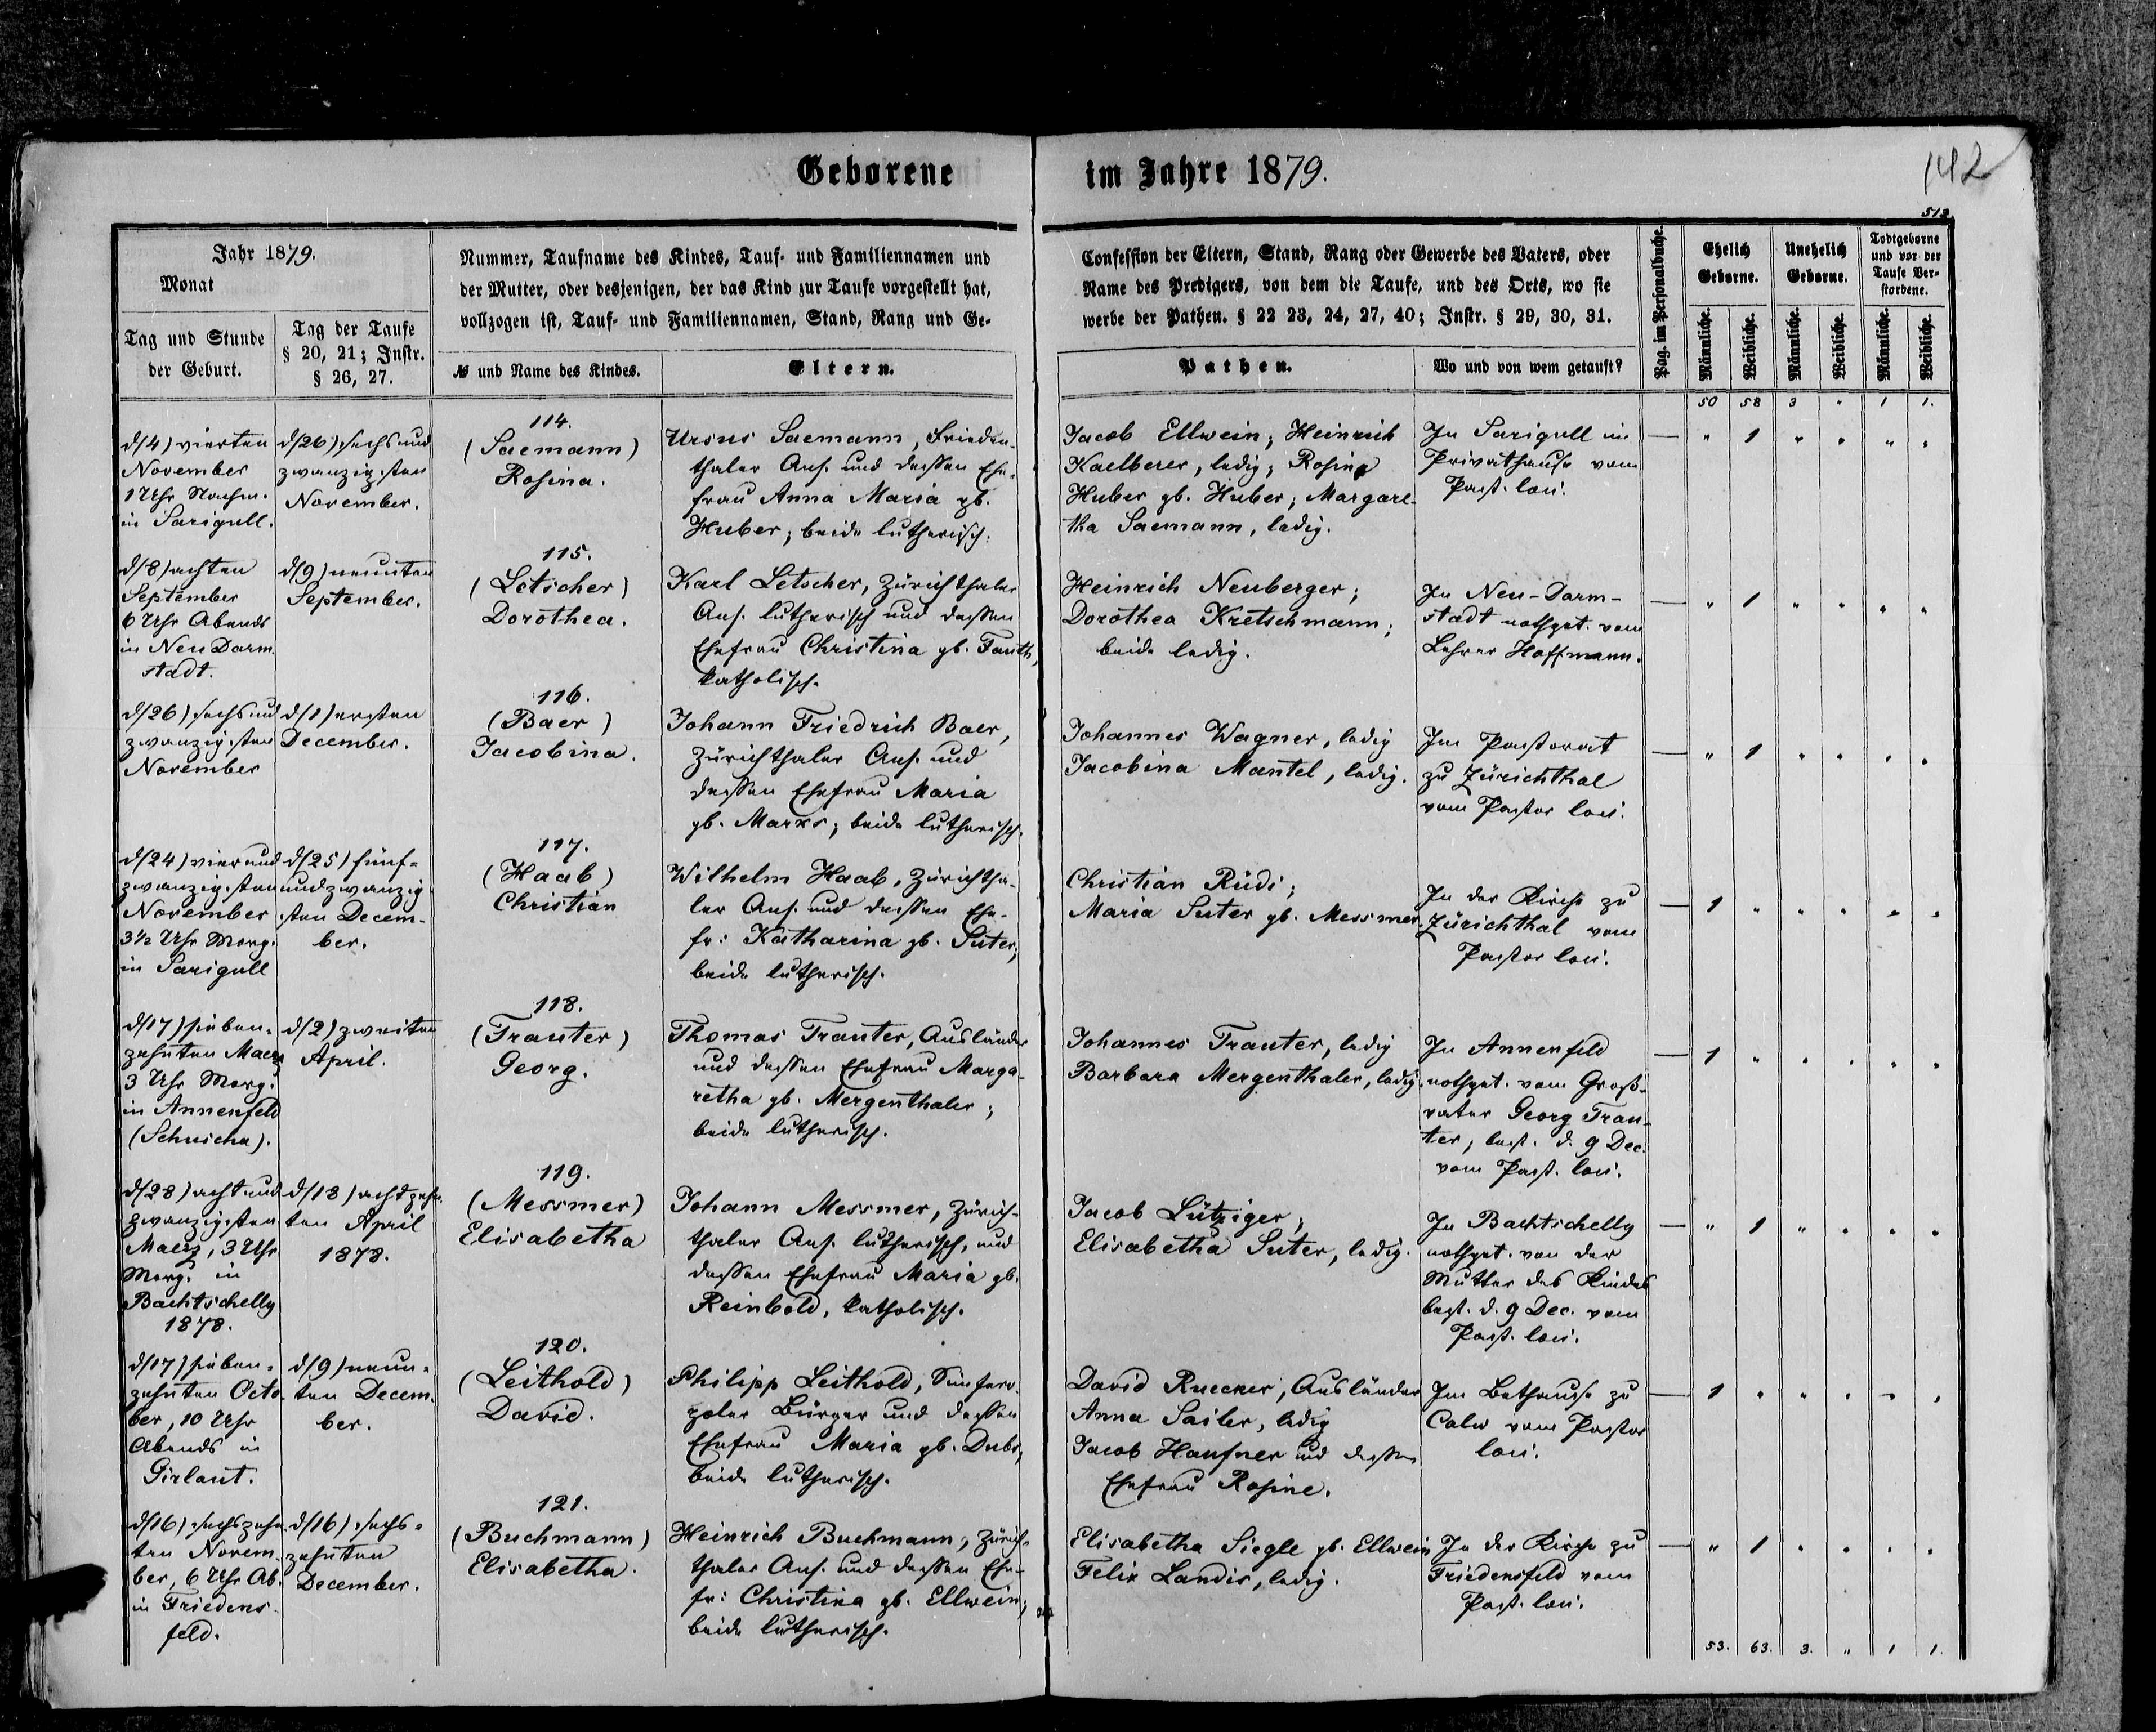 Geborene im Jahre 1879.
142
512
Jahr 1879.
Monat
Tag und Stunde
der Geburt.
Tag der Taufe
§ 20, 21; Instr.
§ 26, 27.
Nummer, Taufname des Kindes, Tauf- und Familiennamen und
der Mutter, oder desjenigen, der das Kind zur Taufe vorgestellt hat,
vollzogen ist, Tauf- und Familiennamen, Stand, Rang und Ge-
№ und Name des Kindes.
Eltern.
Confession der Eltern, Stand, Rang oder Gewerbe des Vaters, oder
Name des Predigers, von dem die Taufe, und des Orts, wo sie
werbe der Pathen. § 22 23, 24, 27, 40; Instr. § 29, 30, 31.
Pathen.
Wo und von wem getauft?
Pag. im Personalbuche.
Ehelich
Geborne.
Unehelich
Geborne.
Todtgeborne
und vor der
Taufe Ver-
storbene.
Männliche.
Weibliche.
Männliche.
Weibliche.
Männliche.
Weibliche.
50 58 3 " 1 1.
d/4) vierten
November
1 Uhr Nachm.
in Sarigull.
d/26) sechs und
zwanzigsten
November.
114.
(Saemann)
Rosina.
Ursus Saemann, Frieden-
thaler Ans. und dessen Ehe-
frau Anna Maria gb.
Huber; beide lutherisch.
Jacob Ellwein; Heinrich
Kaelberer, ledig; Rosina
Huber gb. Huber; Margare-
tha Saemann, ledig.
In Sarigull im
Privathause vom
Past. loci.
— " 1 " " " "
d/8) achten
September
6 Uhr Abends
in Neu Darm-
stadt.
d/9) neunten
September.
115.
(Letscher)
Dorothea.
Karl Letscher, Zürichthaler
Ans. lutherisch und dessen
Ehefrau Christina gb. Fauth,
katholisch.
Heinrich Neuberger;
Dorothea Kretschmann;
beide ledig.
In Neu-Darm-
stadt nothget. vom
Lehrer Hoffmann.
— " 1 " " " "
d/26) sechs und
zwanzigsten
November
d/1) ersten
December.
116.
(Baer)
Jacobina.
Johann Friedrich Baer,
Zürichthaler Ans. und
dessen Ehefrau Maria
gb. Marxs; beide lutherisch.
Johannes Wagner, ledig
Jacobina Mantel, ledig.
Im Pastorat
zu Zürichthal
vom Pastor loci.
— " 1 " " " "
d/24) vier und
zwanzigsten
November
3½ Uhr Morg.
in Sarigull
d/25) fünf-
undzwanzig-
sten Decem-
ber.
117.
(Haab)
Christian
Wilhelm Haab, Zürichtha-
ler Ans. und dessen Ehe-
fr: Katharina gb. Suter;
beide lutherisch.
Christian Rüdi;
Maria Suter gb. Messmer.
In der Kirche zu
Zürichthal vom
Pastor loci.
— 1 " " " " "
d/17) sieben-
zehnten Maerz
3 Uhr Morg.
in Annenfeld
(Schuscha).
d/2) zweiten
April.
118.
(Trauter)
Georg.
Thomas Trauter, Ausländer
und dessen Ehefrau Marga-
retha gb. Mergenthaler;
beide lutherisch.
Johannes Trauter, ledig
Barbara Mergenthaler, ledig.
In Annenfeld
nothget. vom Groß-
vater Georg Trau-
ter, best. d. 9 Dec.
vom Past. loci.
— 1 " " " " "
d/28) acht und
zwanzigsten
Maerz, 3 Uhr
Morg. in
Bachtschelly
1878.
d/18) achtzehn-
ten April
1878.
119.
(Messmer)
Elisabetha
Johann Messmer, Zürich-
thaler Ans. lutherisch, und
dessen Ehefrau Maria gb.
Reinbold, katholisch.
Jacob Lütziger;
Elisabetha Suter, ledig.
In Bachtschelly
nothget. von der
Mutter des Kindes
best. d. 9 Dec. vom
Past. loci.
— " 1 " " " "
d/17) sieben-
zehnten Octo-
ber, 10 Uhr
Abends in
Girlaut.
d/9) neun-
ten Decem-
ber.
120.
(Leithold)
David.
Philipp Leithold, Simfero-
poler Bürger und dessen
Ehefrau Maria gb. Dubs;
beide lutherisch.
David Ruecker, Ausländer
Anna Sailer, ledig
Jacob Haufner und dessen
Ehefrau Rosine.
Im Bethause zu
Calw vom Pastor
loci.
— 1 " " " " "
d/16) sechszehn-
ten Novem-
ber, 6 Uhr Ab.
in Friedens-
feld.
d/16) sechs-
zehnten
December.
121.
(Buchmann)
Elisabetha.
Heinrich Buchmann, Zürich-
thaler Ans. und dessen Ehe-
fr: Christina gb. Ellwein;
beide lutherisch.
Elisabetha Siegle gb. Ellwein
Felix Landis, ledig.
In der Kirche zu
Friedensfeld vom
Past. loci.
— " 1 " " " "
53. 63. 3. " 1 1.